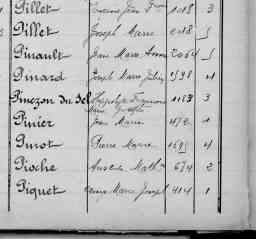 Pillet Jean Fran 1018 3
Pillet Joseph Marie 2018
Pinault Jean Marie 2064
Pinard Joseph Marie Julien 1598 1
Pinczon du Sel Hippolyte 1183 3
Marie Joseph
Pinier Jean Marie 1
Pirot Pierre Marie 4
Pioche Math 674 2
Piquet Marie Joseph 414 1